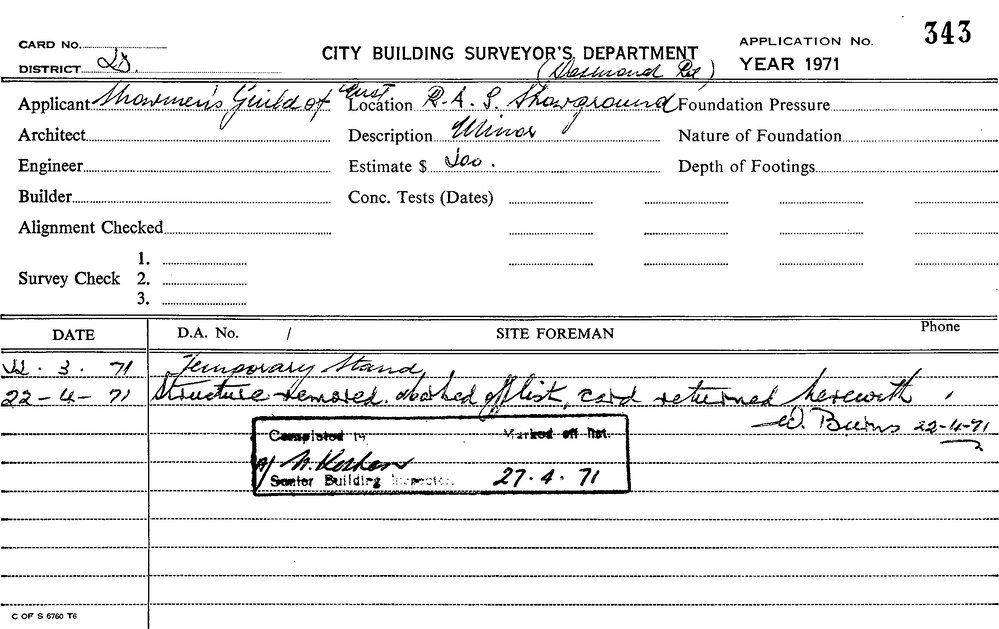 CARD No.
CITY BUILDING SURVEYOR'S DEPARTMENT
APPLICATION No. 343
DISTRICT
YEAR 1971
Applicant Showmen's Guild of Aust
Location R.A.S. Showground
Foundation Pressure
Architect
Description Minor
Nature of Foundation
Engineer
Estimate $
Depth of Footings
Builder
Conc. Tests (Dates)
Alignment Checked
1.
Survey Check 2.
3.
DATE D.A. No. / SITE FOREMAN Phone
3. 71 Temporary Stand
22-4-71 Structure removed. Marked off list, card returned herewith.
W. Burns 22-4-71
Completed Marked off list.
Senior Building Inspector. 27.4.71
C OF S 6760 T6